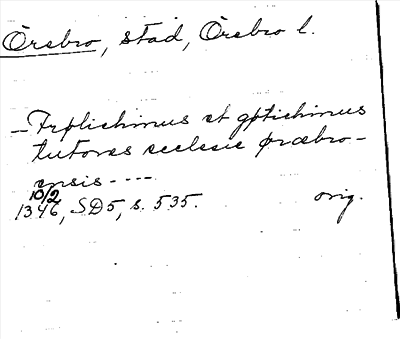 Örebro, stad, Örebro l.
et
tutores ecclesie præbro-
ensis ----
10/2
1346, SD5, s. 535. orig.